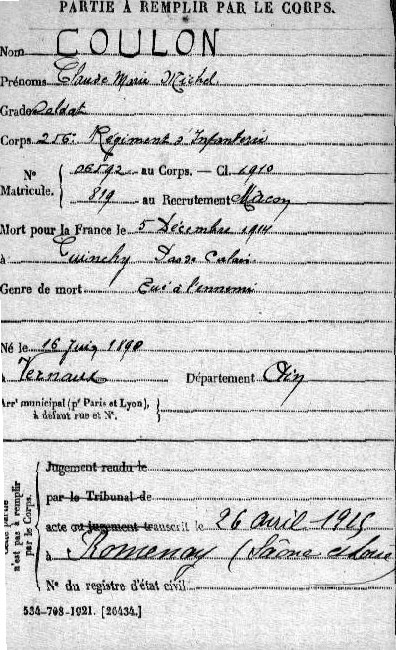 PARTIE À REMPLIR PAR LE CORPS.
Nom COULON
Prénoms Claude Marie Michel
Grade Soldat
Corps 256e Régiment d'Infanterie
N° Matricule. 06592 au Corps. — Cl. 1910
819 au Recrutement Macon
Mort pour la France le 5 Décembre 1914
à Cuinchy Pas de Calais
Genre de mort Tué à l'ennemi
Né le 16 Juin 1890
à Vernoux Département Ain
Arrt municipal (pr Paris et Lyon),
à défaut rue et N°.
Cette partie n'est pas à remplir par le Corps.
Jugement rendu le
par le Tribunal de
acte ou jugement transcrit le 26 avril 1915
à Romenay (Saône et Loire
N° du registre d'état civil
534-708-1921. [26434.]